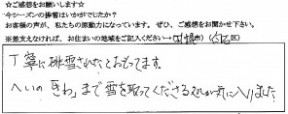 ☆ご感想をお願いします☆
今シーズンの排雪はいかがでしたか？
お客様の声が、私たちの原動力になっています。ぜひ、ご感想をお聞かせ下さい。
※差支えなければ、お住まいの地域をご記入ください→（札幌市）（ 区）
丁寧に排雪されたとおもってます。
へいのきわまで雪を取ってくださる処が気に入りました